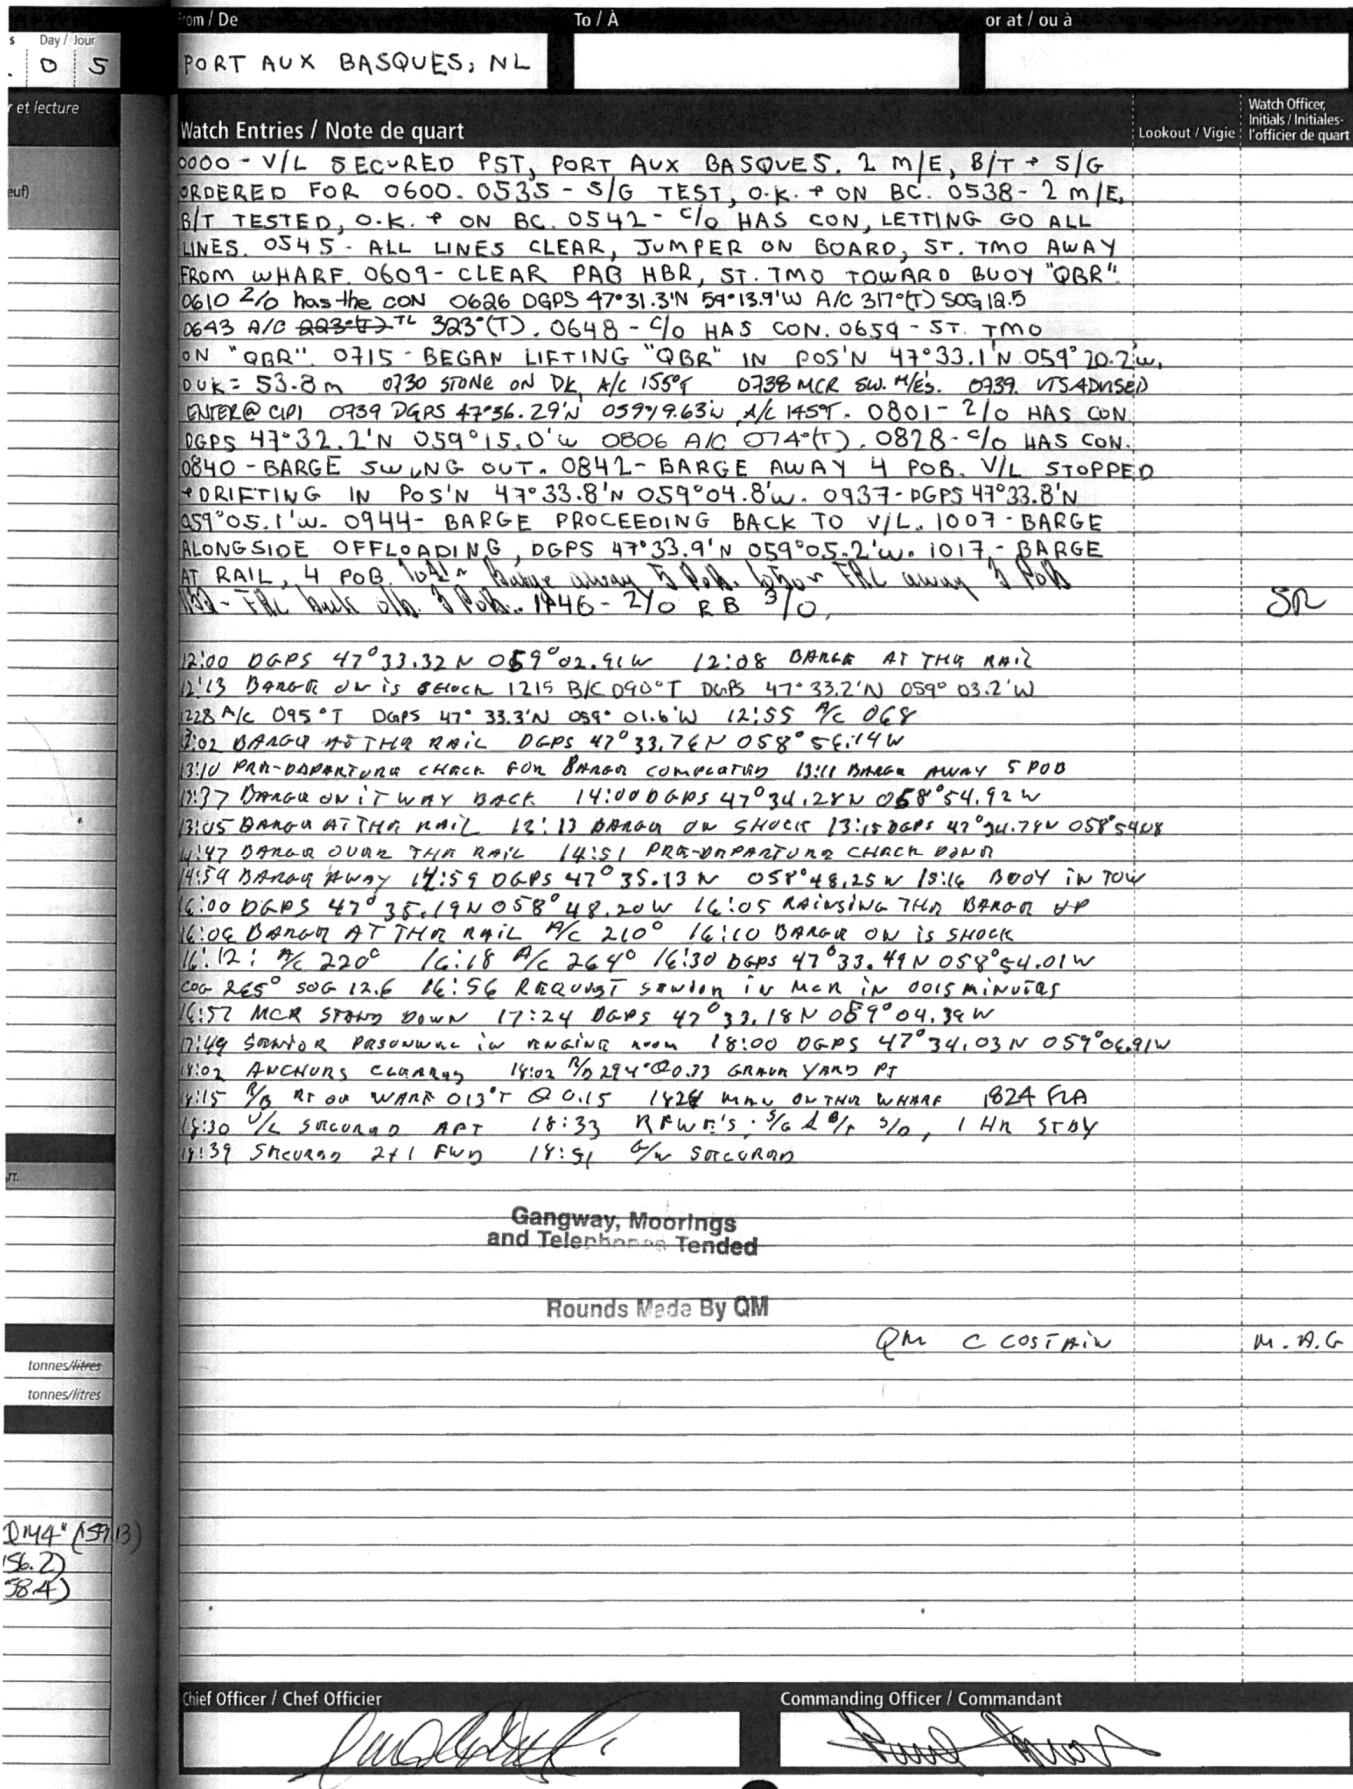 From / De To / À or at / ou à
s Day / Jour
0 5 PORT AUX BASQUES, NL
r et lecture
Watch Entries / Note de quart Lookout / Vigie Watch Officer, Initials / Initiales- l'officier de quart
euf)
0000 - V/L SECURED PST, PORT AUX BASQUES. 2 M/E, B/T + S/G
ORDERED FOR 0600. 0535 - S/G TEST, O.K. + ON BC. 0538 - 2 M/E,
B/T TESTED, O.K. + ON BC. 0542 - C/O HAS CON, LETTING GO ALL
LINES. 0545 - ALL LINES CLEAR, JUMPER ON BOARD, ST. TMO AWAY
FROM WHARF. 0609 - CLEAR PAB HBR, ST. TMO TOWARD BUOY "QBR"
0610 2/O has the CON 0626 DGPS 47°31.3'N 59°13.9'W A/C 317°(T) SOG 12.5
0643 A/C 223°(T) TL 323°(T). 0648 - C/O HAS CON. 0659 - ST. TMO
ON "QBR". 0715 - BEGAN LIFTING "QBR" IN POS'N 47°33.1'N 059°20.2'W,
DUK = 53.8m 0730 STONE ON DK, A/C 155°T 0738 MCR SW. M/E's. 0739. VTS ADVISED
ENTER @ CIPI 0739 DGPS 47°36.29'N 059°19.63'W A/C 145°T. 0801 - 2/O HAS CON.
DGPS 47°32.2'N 059°15.0'W 0806 A/C 074°(T). 0828 - C/O HAS CON.
0840 - BARGE SWUNG OUT. 0842 - BARGE AWAY 4 POB. V/L STOPPED
+ DRIFTING IN POS'N 47°33.8'N 059°04.8'W. 0937 - DGPS 47°33.8'N
059°05.1'W. 0944 - BARGE PROCEEDING BACK TO V/L. 1007 - BARGE
ALONGSIDE OFFLOADING, DGPS 47°33.9'N 059°05.2'W. 1017 - BARGE
AT RAIL, 4 POB. Barge away 5 POB. FRC away 3 POB
FRC back 3 POB. 1146 - 2/O RB 3/O. SR
12:00 DGPS 47°33.32N 059°02.91W 12:08 BARGE AT THE RAIL
12:13 BARGE ON is SHOCK 1215 B/C 090°T DGPS 47°33.2'N 059° 03.2'W
1228 A/C 095°T DGPS 47° 33.3'N 059° 01.6'W 12:55 A/C 068
13:02 BARGE AT THE RAIL DGPS 47°33.76N 058°56.14W
13:10 PRE-DEPARTURE CHECK FOR BARGE COMPLETED 13:11 BARGE AWAY 5 POB
13:37 BARGE ON iT WAY BACK 14:00 DGPS 47°34.28N 058°54.92W
13:05 BARGE AT THE RAIL 12:13 BARGE ON SHOCK 13:15 DGPS 47°34.78N
14:47 BARGE OVER THE RAIL 14:51 PRE-DEPARTURE CHECK DONE
14:54 BARGE AWAY 14:59 DGPS 47°35.13N 058°48.25W 15:16 BOOY IN TOW
16:00 DGPS 47°35.19N 058°48.20W 16:05 RAINSING THE BARGE UP
16:06 BARGE AT THE RAIL A/C 210° 16:10 BARGE ON is SHOCK
16:12: A/C 220° 16:18 A/C 264° 16:30 DGPS 47°33.49N 058°54.01W
COG 265° SOG 12.6 16:56 REQUEST SENIOR IN MCR IN 0015 MINUTES
16:57 MCR STAND DOWN 17:24 DGPS 47°33.18N 059°04.39W
17:49 SENIOR PERSONNEL IN ENGINE ROOM 18:00 DGPS 47°34.03N 059°06.91W
18:02 ANCHORS CLEARED 18:02 R/B 294°@0.33 GRAVE YARD PT
18:15 R/B WARF 013°T @ 0.15 1824 MAN ON THE WHARF 1824 FLA
18:30 V/L SECURED APT 18:33 S/G & B/T S/O, 1 HR STBY
18:39 SECURED 2+1 FWD 18:51 G/W SECURED
Gangway, Moorings
and Telephones Tended
Rounds Made By QM
QM C COSTAIN M.A.G
tonnes/litres
tonnes/litres
156.2)
58.4)
Chief Officer / Chef Officier Commanding Officer / Commandant